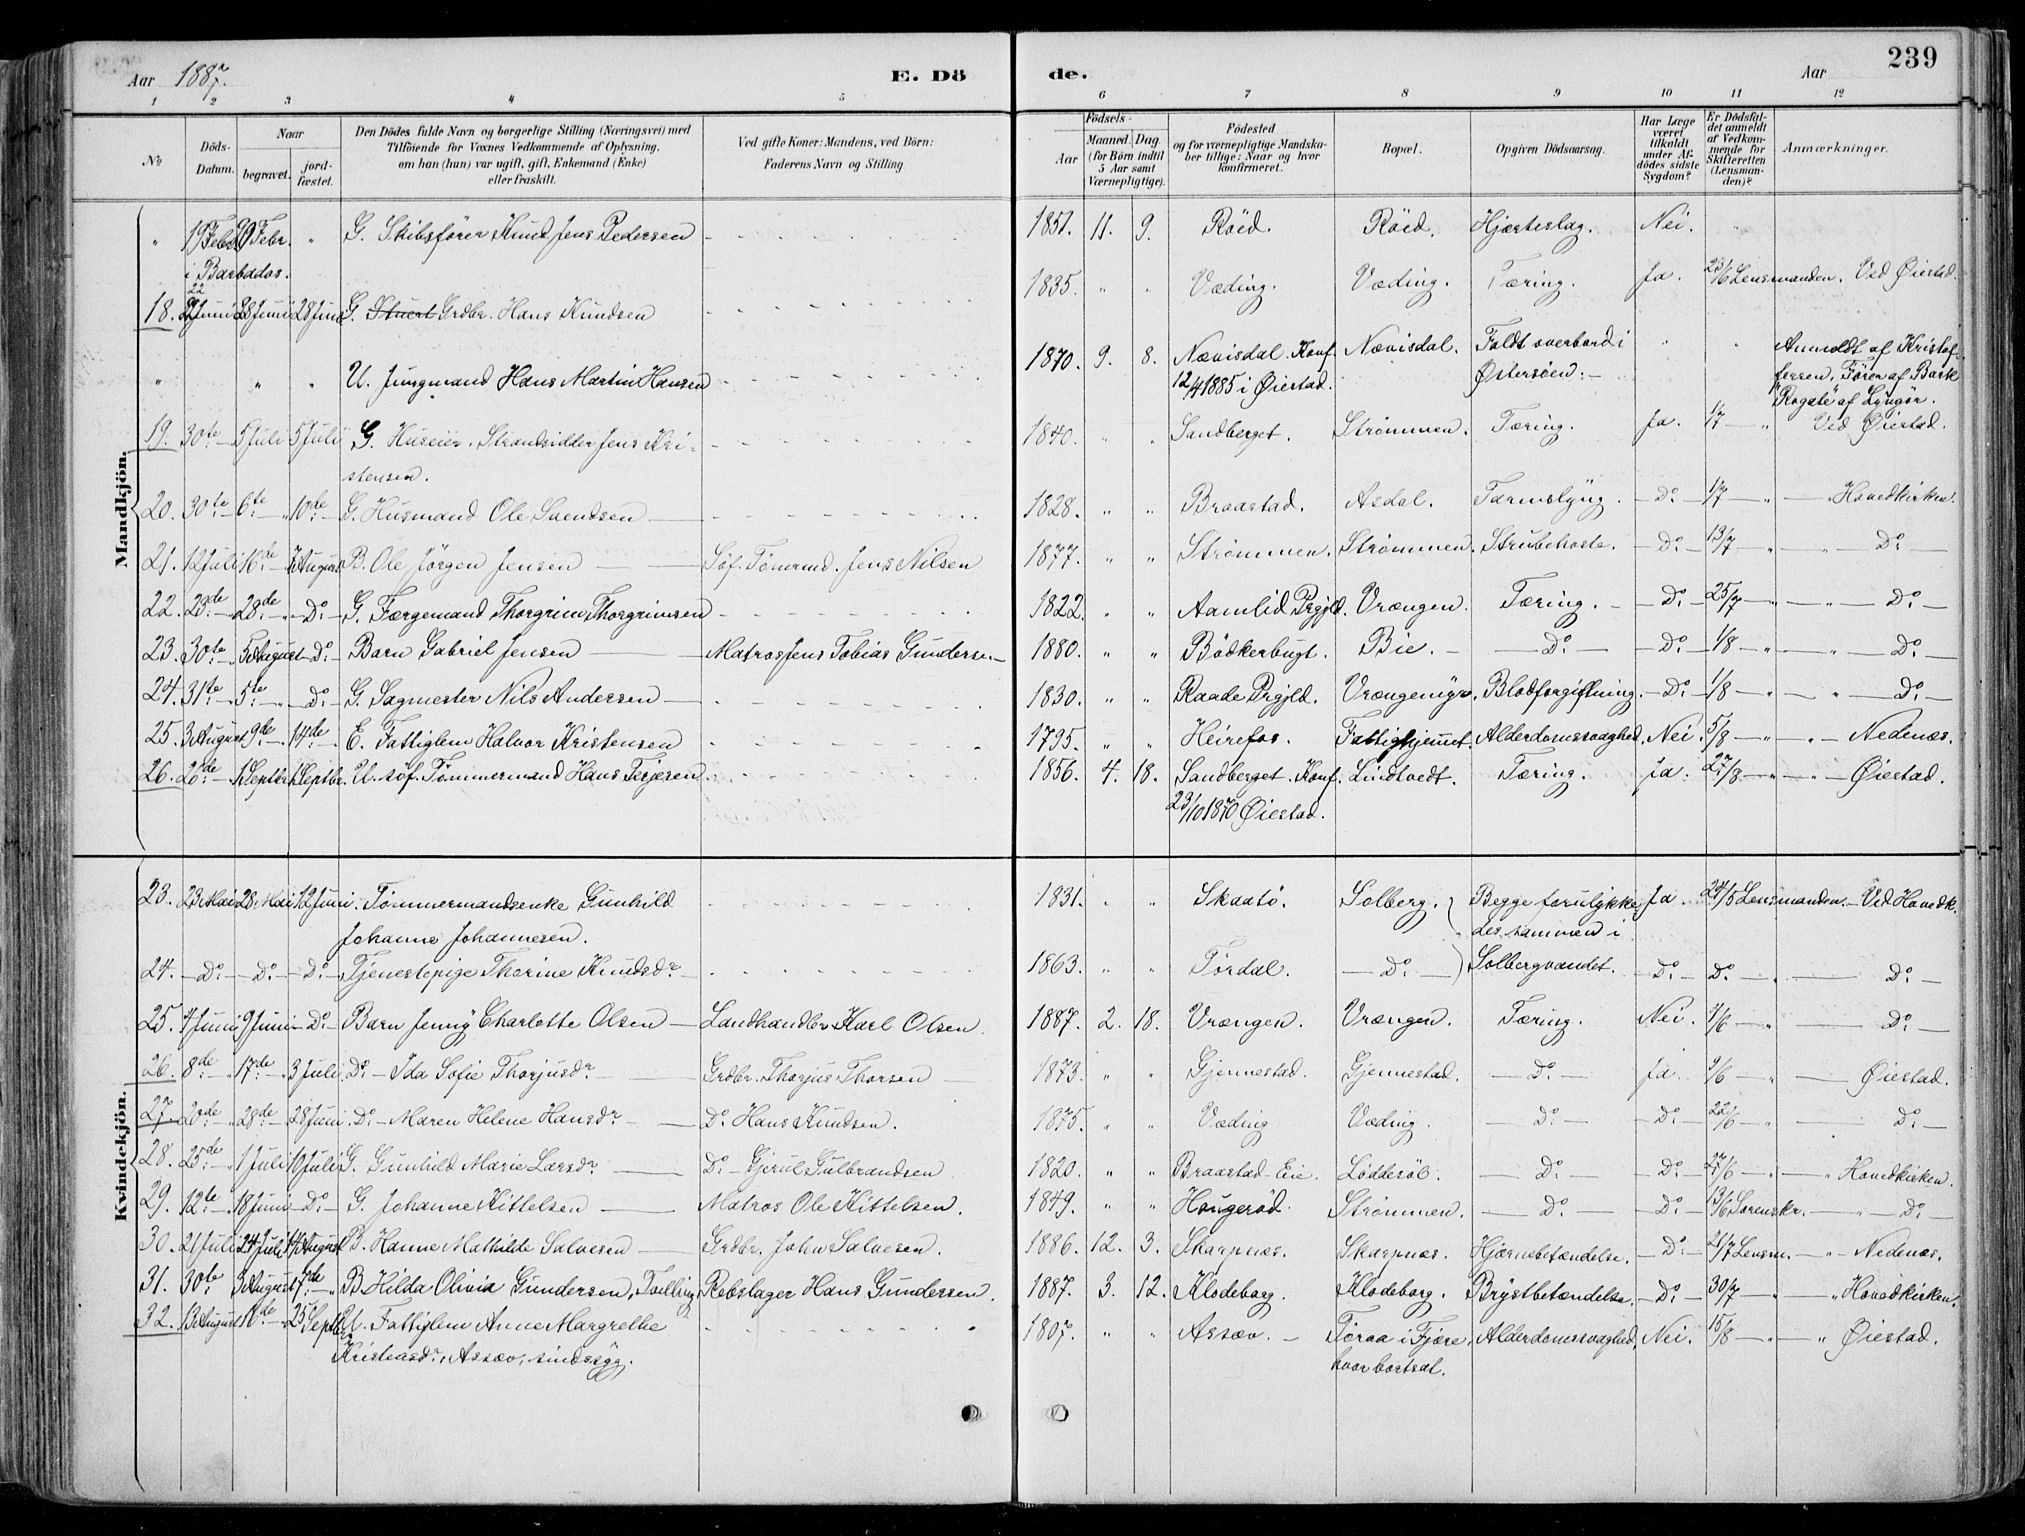 Aar 1887.
E. Dö
de.
Aar
239
1 2 3 4 5 6 7 8 9 10 11 12
No
Döds-Datum.
Naar
begravet.
jord-fæstet.
Den Dödes fulde Navn og borgerlige Stilling (Næringsvei) med
Tilföiende for Voxnes Vedkommende af Oplysning,
om han (hun) var ugift, gift, Enkemand (Enke)
eller fraskilt.
Ved gifte Koner: Mandens, ved Börn:
Faderens Navn og Stilling.
Födsels-
Aar
Maaned. Dag.
(for Börn indtil
5 Aar samt
Værnepligtige).
Födested
og for værnepligtige Mandska-
ber tillige: Naar og hvor
konfirmeret.
Bopæl.
Opgiven Dödsaarsag.
Har Læge
været
tilkaldt
under Af-
dödes sidste
Sygdom?
Er Dödsfal-
det anmeldt
af Vedkom-
mende for
Skifteretten
(Lensman-
den)?
Anmærkninger.
Mandkjön.
" 19 Febr. " G. Skibsfører Knud Jens Pedersen 1851. 11. 9. Røed. Røed. Hjærteslag. Nei. "
i Barbados.
18. 22 Juni 28 Juni 28 Juni G. Stuert Grdbr. Hans Knudsen 1835. " " Væding. Væding. Tæring. Ja. 23/6 Lensmanden. Ved Øiestad.
" " " U. Jungmand Hans Martin Hansen 1870. 9. 8. Nævisdal. Konf. Nævisdal. Faldt overbord i " " Anmeldt af Kristof-
12/4 1885 i Øiestad. Østersøen. fersen, Fører af Bark
"Rogate" af Lyngør.
19. 30te 5 Juli 5 Juli G. Huseier, Strandsidder Jens Kri- 1840. " " Sandberget. Strømmen. Tæring. Ja. 1/7 " Ved Øiestad.
stensen.
20. 30te 6te 10de G. Husmand Ole Svendsen 1828. " " Braastad. Asdal. Tarmslyng. Do 1/7 " " Hovedkirken.
21. 12 Juli 16de 7 August B. Ole Jørgen Jensen Søf. Tømmd. Jens Nilsen 1877. " " Strømmen. Strømmen. Strubehoste. Do 13/7 " Do
22. 23de 28de Do G. Færgemand Thorgrim Thorgrimsen 1822. " " Aamlid Prgjld. Vrængen. Tæring. Do 25/7 " " Do
23. 30te 5 August Do Barn Gabriel Jensen Matros Jens Tobias Gundersen 1880. " " Bödkerbugt. Bie. Do Do 1/8 " " Do
24. 31te 5te Do G. Sagmester Nils Andersen 1830. " " Raade Prgjld. Vrængemyr. Blodforgiftning. Do 1/8 " " Do
25. 3 August 9de 14de E. Fattiglem Halvor Kristensen 1795. " " Heirefos. Fattighjemmet. Alderdomssvaghed. Nei. 5/8 " " Nedenæs.
26. 26de 1 Septbr 1 Septbr. U. søf. Tømmermand Hans Terjesen 1856. 4. 18. Sandberget. Konf. Lindtvedt. Tæring. Ja. 27/8 " " Øiestad.
23/10 1870 Øiestad.
Kvindekjön.
23. 23 Mai 28. Mai 12 Juni. Tømmermandsenke Gunhild 1831. " " Skaatø. Solberg. Begge forulykke- Ja. 24/5 Lensmanden. Ved Hovedk.
Johanne Johannesen. des sammen i
24. Do Do Do Tjenestepige Thorine Knudsdr 1863. " " Tørdal. Do Solbergvandet. Do Do " Do
25. 4 Juni 9 Juni Do Barn Jenny Charlotte Olsen Landhandler Karl Olsen. 1887. 2. 18. Vrængen. Vrængen. Tæring. Nei. 4/6 " Do
26. 8de 17de 3 Juli Do Ida Sofie Thorjusdr Grdbr. Thorjus Thorsen 1873. " " Gjennestad. Gjennestad. Do Ja. 9/6 " Øiestad.
27. 20de 28de 28 Juni. Do Maren Helene Hansdr Do Hans Knudsen. 1875. " " Væding Væding. Do Do 22/6 " Do
28. 25de 1 Juli 10 Juli G. Gunhild Marie Larsdr Do Gjerul Gulbrandsen 1820. " " Braastad-Eie. Løddesøl. Do Do 27/6 " Hovedkirken.
29. 12te 18 Juni Do G. Johanne Kittelsen Matros Ole Kittelsen. 1849. " " Haugerød. Strømmen. Do Do 13/6 Sorenskr. " Do
30. 21 Juli 24 Juli 14 August B. Hanne Mathilde Salvesen Grdbr. John Salvesen. 1886. 12. 3. Skarpnæs. Skarpnæs. Hjærnebetændelse. Do 21/7 Lensm. " Nedenæs.
31. 30te 3 August 7de B. Hilda Olivia Gundersen, Tvilling Rebslager Hans Gundersen. 1887. 3. 12. Klodeborg. Klodeborg. Brystbetændelse. Do 30/7 " " Hovedkirken.
32. 13 August 18de 25 Septbr U. Fattiglem Anne Margrethe 1807. " " Assæv. Töraa i Fjære, Alderdomssvaghed. Nei. 15/8 " " Øiestad.
Kristensdr, Assæv, sindssyg. hvor bortsat.